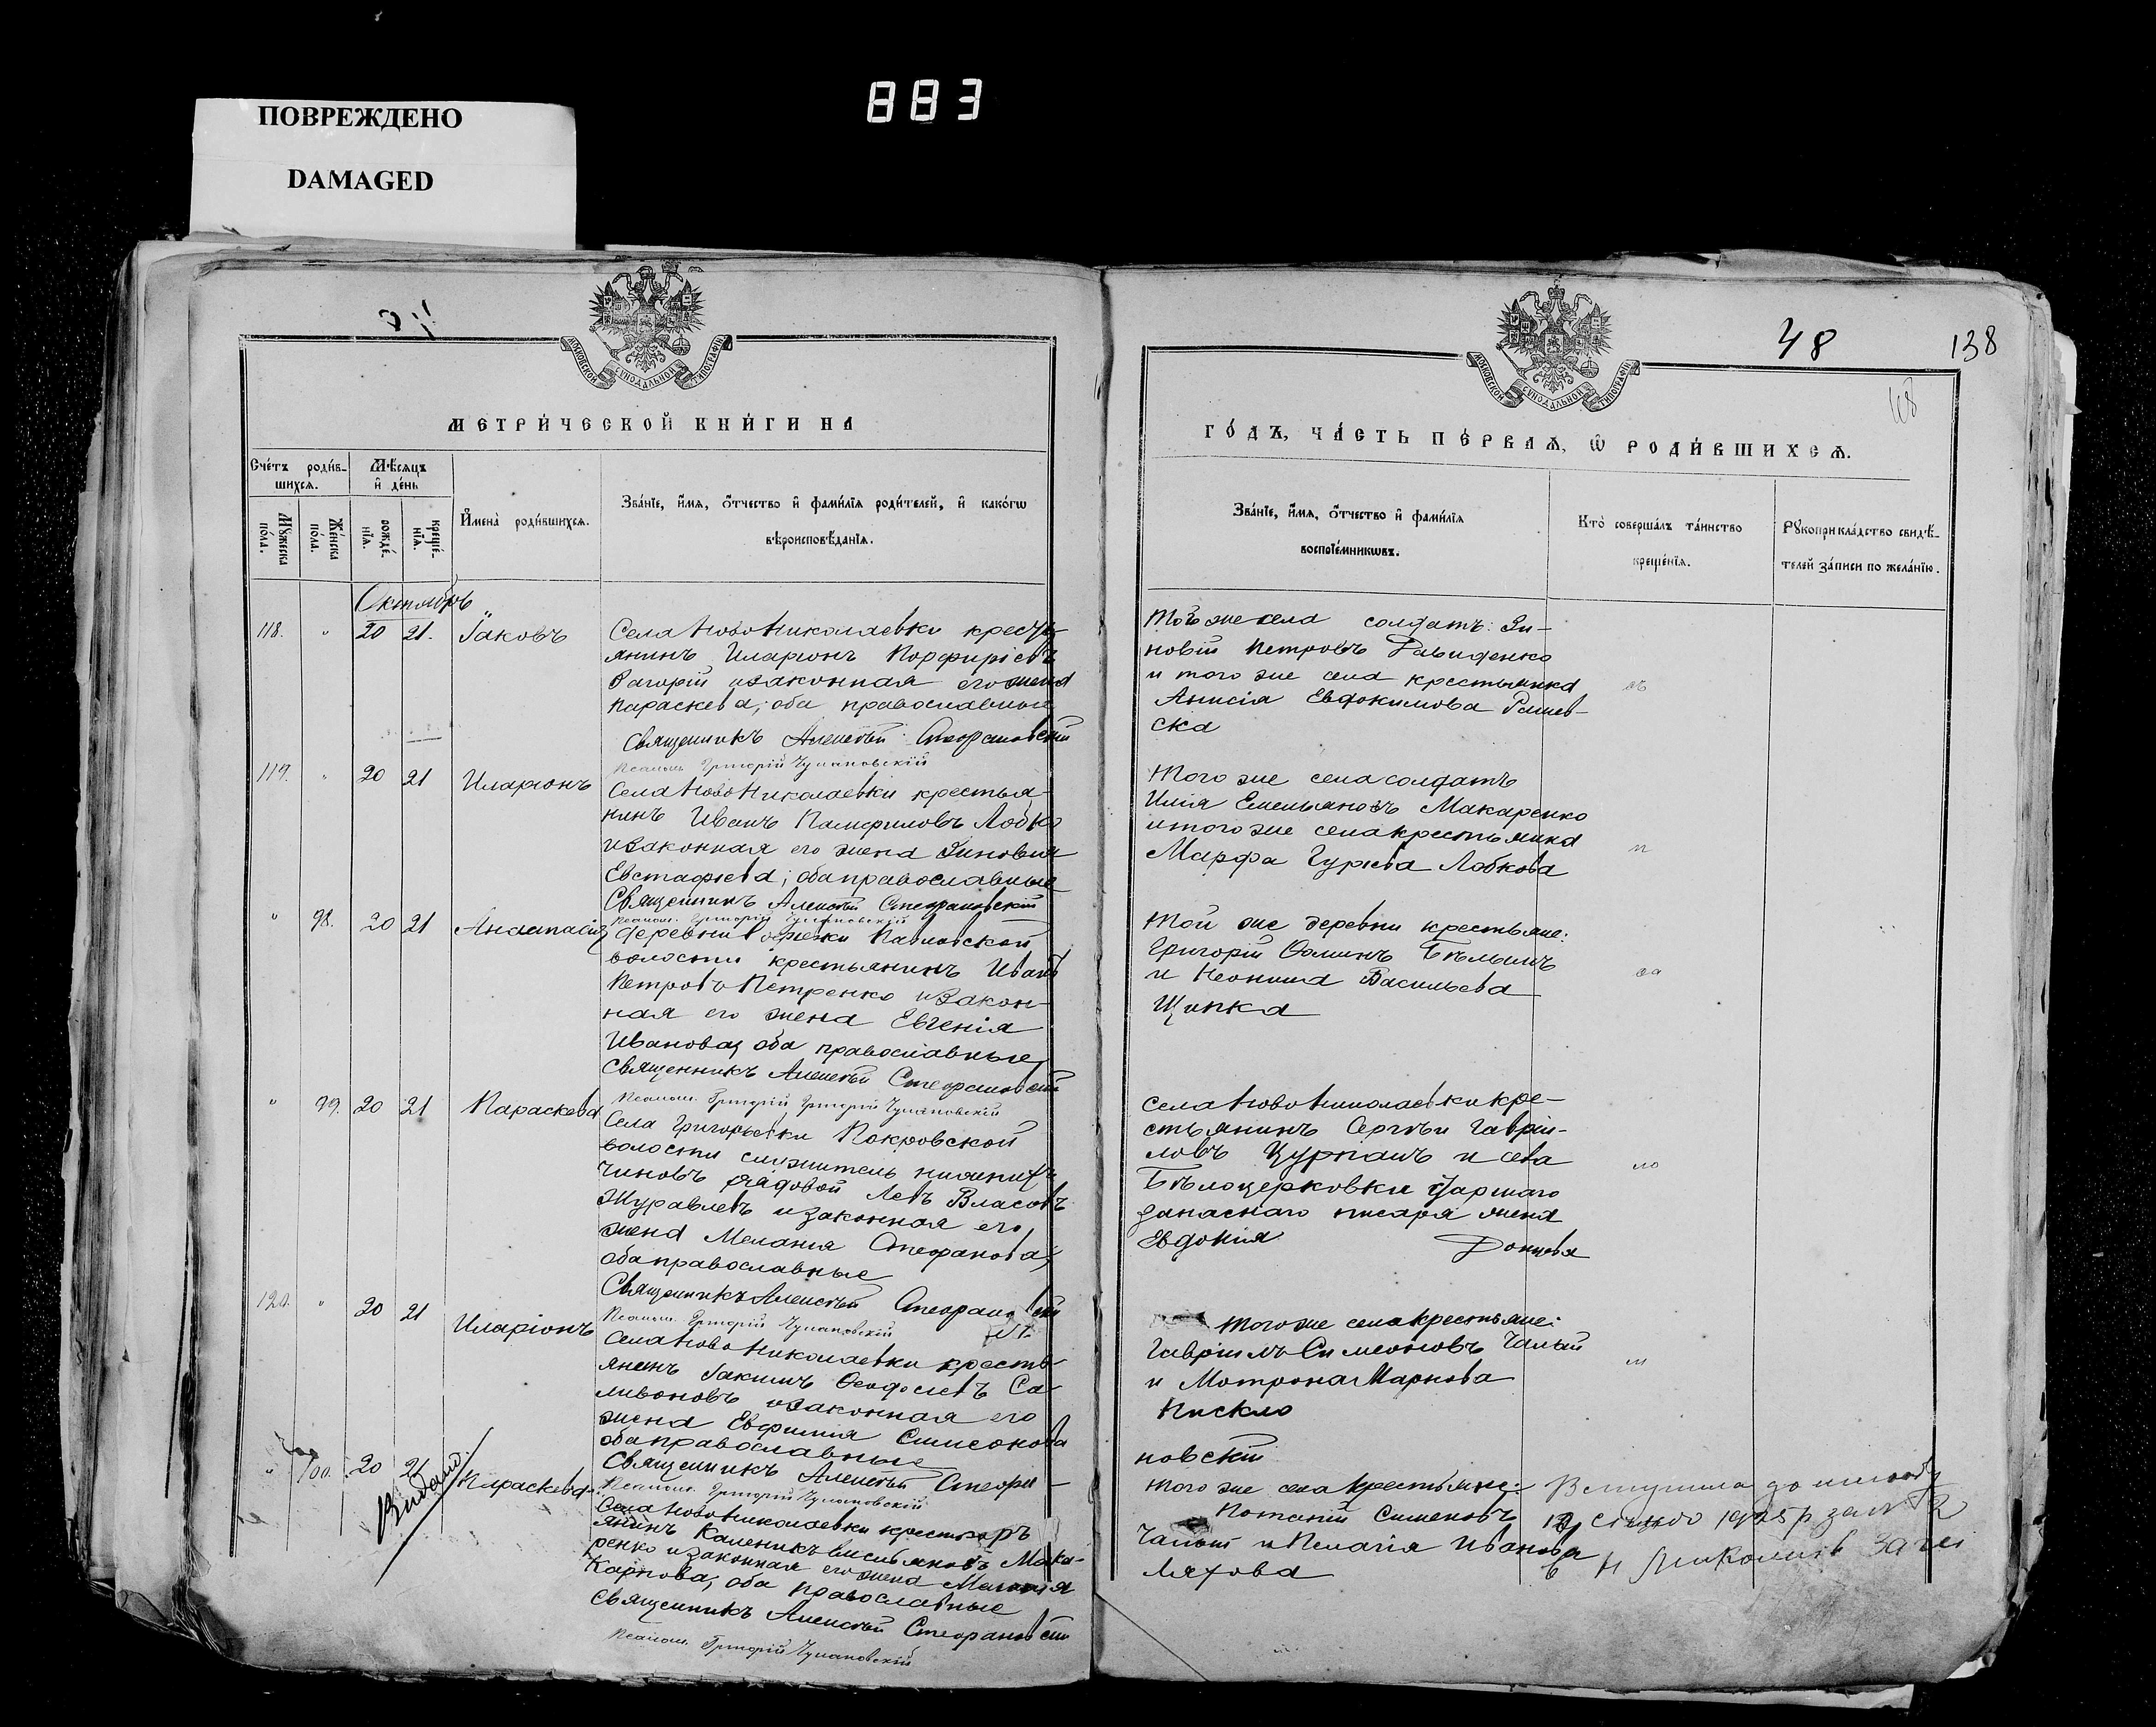 883
ПОВРЕЖДЕНО
DAMAGED
МОСКОВСКОЙ СѴНОДАЛЬНОЙ ТИПОГРАФІИ
МЕТРИ́ЧЕСКОЙ КНИ́ГИ НА
Сче́тъ роди́в-
шихсѧ.
Мѣ́сѧцъ
и҆ де́нь
И҆мена̀ роди́вшихсѧ.
Зва́нїе, и҆́мѧ, ѻ҆́тчество и҆ фами́лїѧ роди́телей, и҆ како́гѡ
вѣроисповѣ́данїѧ.
Мꙋ́жеска
по́ла.
Же́нска
по́ла.
рожде́-
нїѧ.
креще́-
нїѧ.
Октябрь
118. " 20 21. Іаковъ
Села Ново Николаевки кресть-
янинъ Иларіонъ Порфиріевъ
и законная его жена
Параскева, оба православные
Священникъ Алексѣй Стефановскій
Псалом. Григорій Чулановскій
119. " 20 21 Иларіонъ
Села Ново Николаевки крестья-
нинъ Иванъ Памфиловъ Лобко
и законная его жена Зиновія
Евстафіева; оба православные
Священникъ Алексѣй Стефановскій
Псалом. Григорій Чулановскій
" 98. 20 21 Анастасія
деревни Павловской
волости крестьянинъ Иванъ
Петровъ Петренко и закон-
ная его жена Евгенія
Иванова, оба православные
Священникъ Алексѣй Стефановскій
Псалом. Григорій Григорій Чулановскій
" 99. 20 21 Параскева
Села Григорьевки Покровской
волости служитель нижнихъ
чиновъ рядовой Левъ Власовъ
Журавлевъ и законная его
жена Меланія Стефанова;
оба православные
Священникъ Алексѣй Стефановскій
Псалом. Григорій Чулановскій
120. " 20 21 Иларіонъ
Села Ново Николаевки кресть-
янинъ Іакимъ Ѳеодосіевъ Са-
ливоновъ и законная его
жена Евфимія Симеонова
оба православные
Священникъ Алексѣй Стефа-
Псалом. Григорій Чулановскій
" 100. 20 21 Параскева
Видано
Села Ново Николаевки кресть-
янинъ Каленикъ Мака-
ренко и законная его жена
Карпова, оба православные
Священникъ Алексѣй Стефановскій
Псалом. Григорій Чулановскій
МОСКОВСКОЙ СѴНОДАЛЬНОЙ ТИПОГРАФІИ
48
138
ГО́ДЪ, ЧА́СТЬ ПЕ́РВАѦ, Ѽ РОДИ́ВШИХСѦ.
Зва́нїе, и҆́мѧ, ѻ҆́тчество и҆ фами́лїѧ
воспрїе́мникѡвъ.
Кто̀ соверша́лъ та́инство
креще́нїѧ.
Рꙋкоприкла́дство свидѣ́-
телей за́писи по жела́нїю.
Того же села солдатъ: Зи-
новій Петровъ Давиденко
и того же села крестьянка
Анисія Евдокимова Рашев-
ска
Того же села солдатъ
Илія Емельяновъ Макаренко
и того же села крестьянка
Марфа Гуріева Лобкова
Той же деревни крестьяне:
Григорій Ѳоминъ Бѣлымъ
и Неонила Васильева
Щипка
Села Ново Николаевки кре-
стьянинъ Сергѣй Гаврии-
ловъ Цурпанъ и села
Бѣлоцерковки старшаго
запаснаго писаря жена
Евдокія Донцова
Того же села крестьяне:
Гавріилъ Симеоновъ Чалый
и Мотрона Маркова
Пискло
новскій
Того же села крестьяне:
Потапій Симеоновъ
Чалый и Пелагія Иванова
Ляхова
Вступила до шлюбу
1925 р.